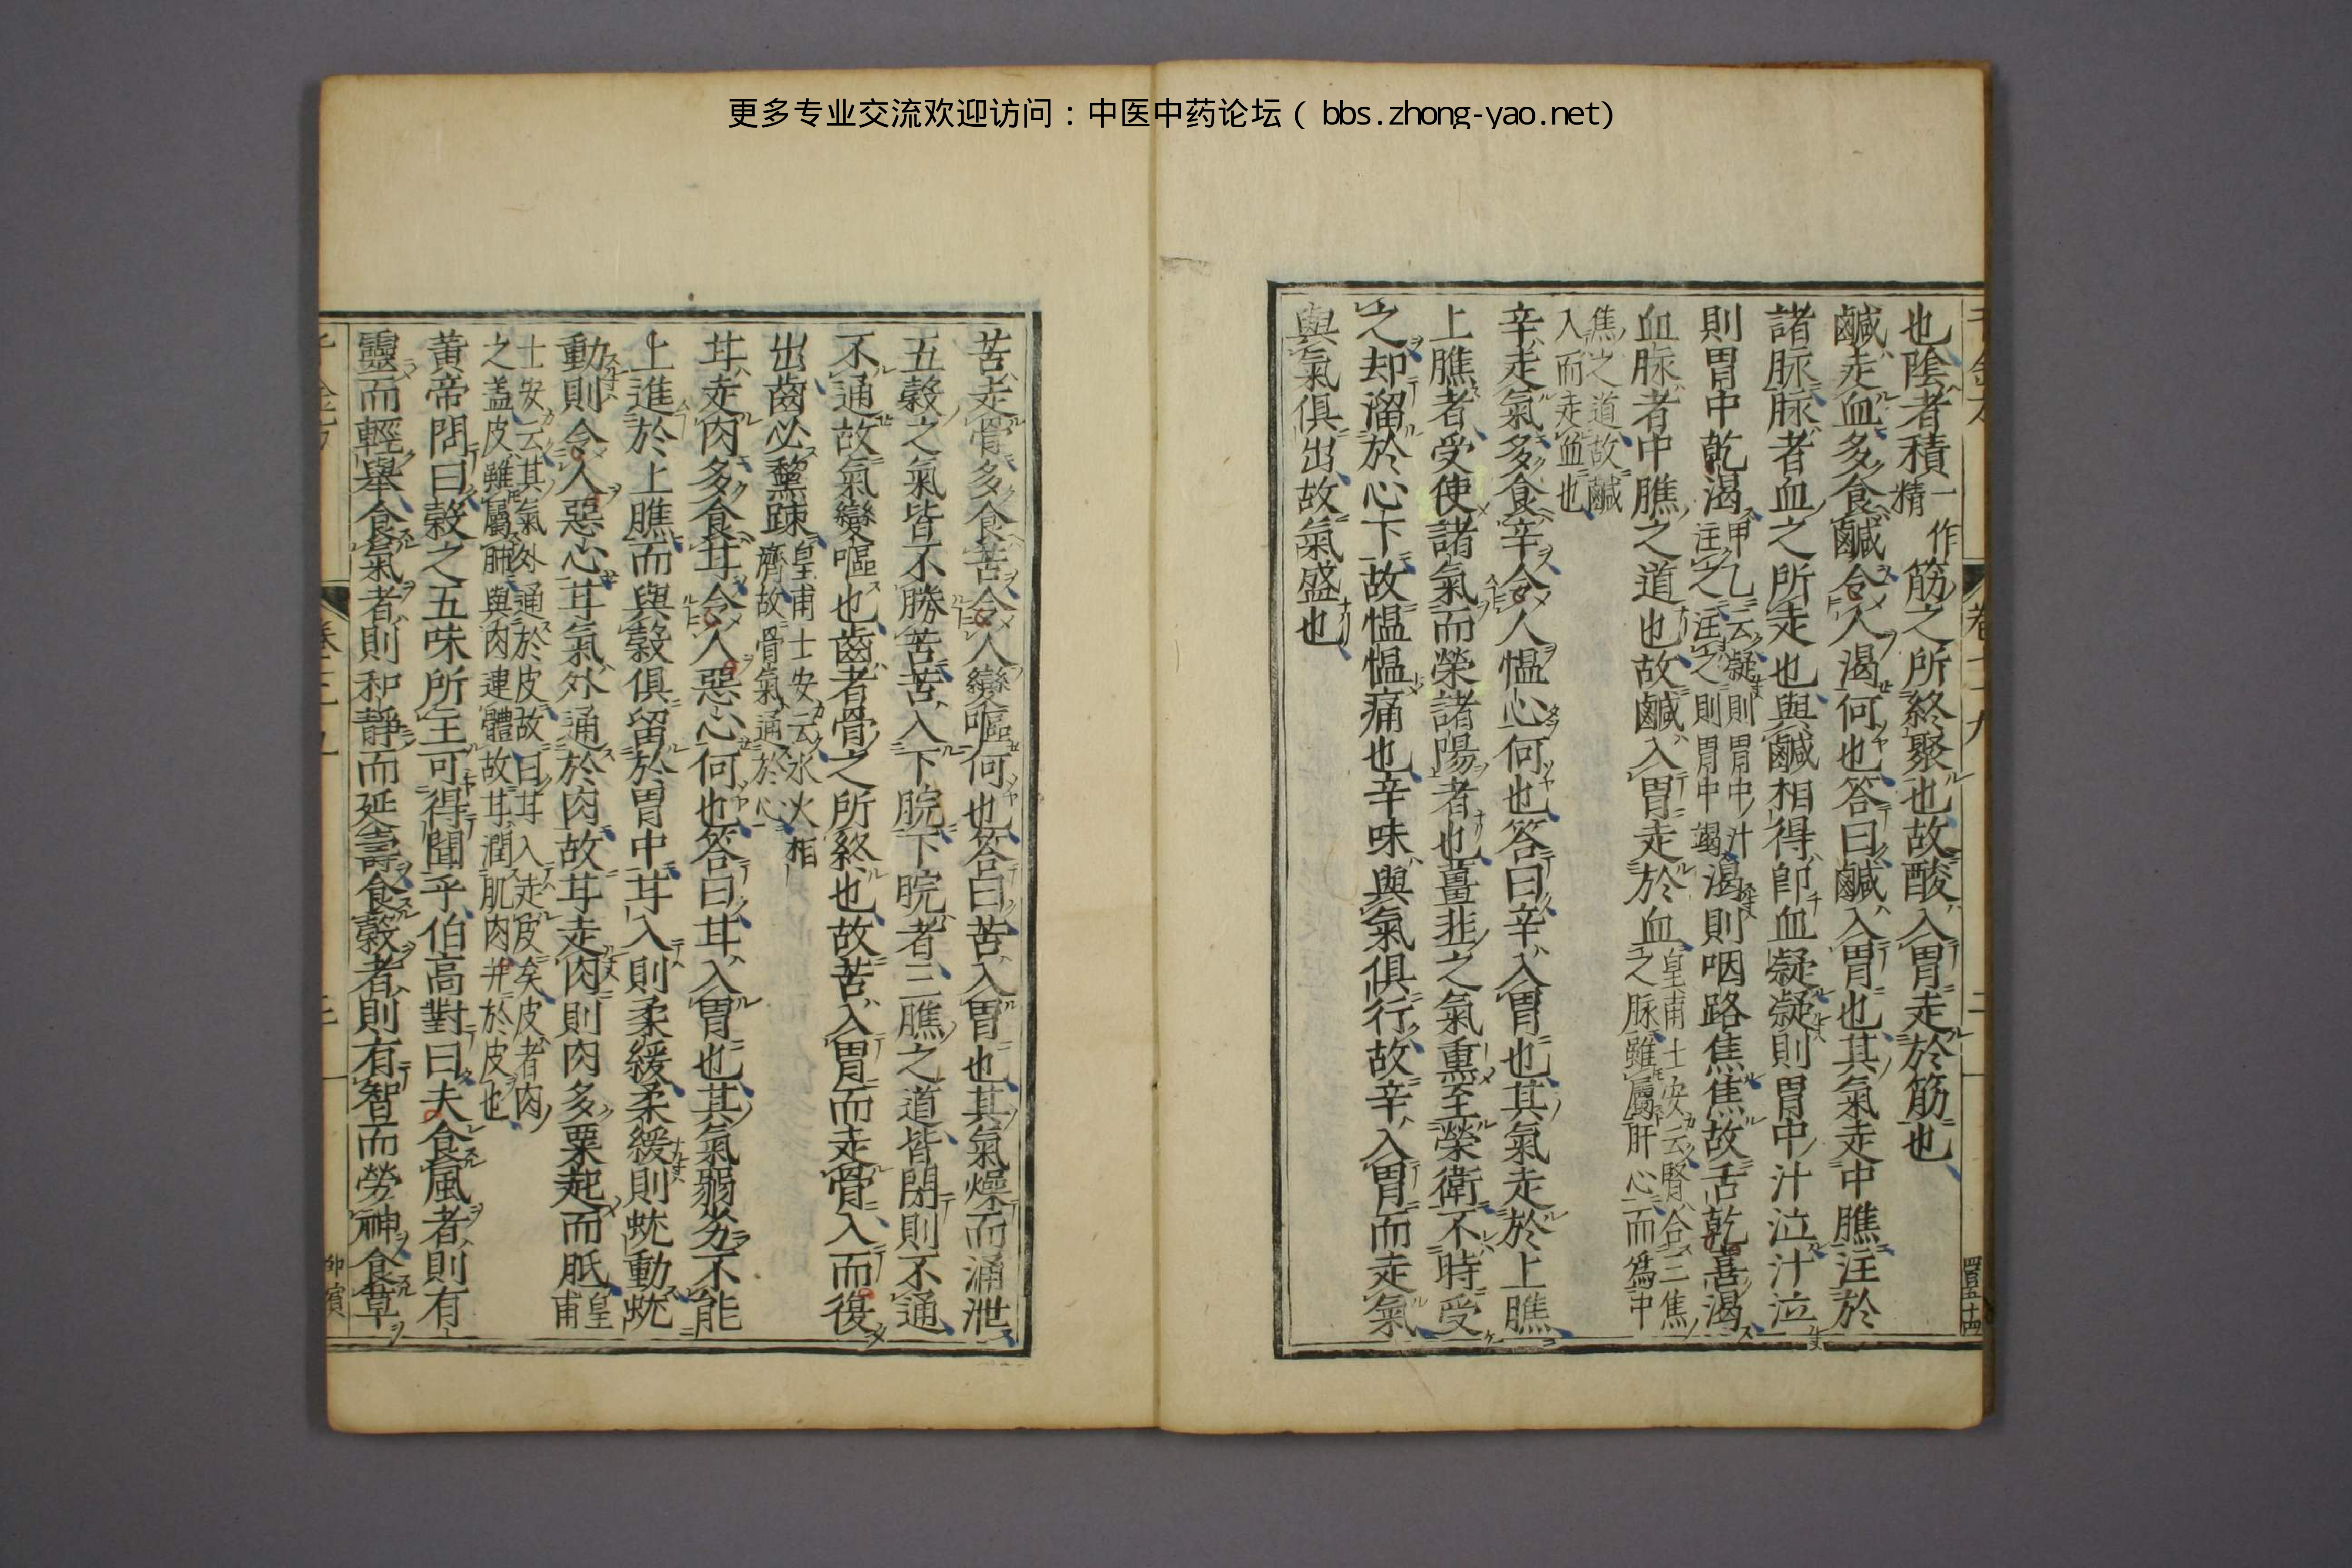 更多专业交流欢迎访问：中医中药论坛（ bbs.zhong-yao.net）
也陰者積一作精筋之所終聚也故酸入胃走於筋也
鹹走血多食鹹令人渴何也答曰鹹入胃也其氣走中膲注於
諸脉脉者血之所走也與鹹相得即血凝凝則胃中汁泣汁泣
則胃中乾渴甲乙云凝則胃中汁注之注之則胃中竭渴則咽路焦焦故舌乾喜渴
血脉者中膲之道也故鹹入胃走於血皇甫士安云腎合三焦之脉雖屬肝心而爲中
焦之道故鹹入而走血也
辛走氣多食辛令人愠心何也答曰辛入胃也其氣走於上膲
上膲者受使諸氣而榮諸陽者也薑韭之氣熏至榮衛不時受
之却溜於心下故愠愠痛也辛味與氣俱行故辛入胃而走氣
與氣俱出故氣盛也
卷二十九
二
四百五十四
苦走骨多食苦令人變嘔何也答曰苦入胃也其氣燥而涌泄
五穀之氣皆不勝苦苦入下脘下脘者三膲之道皆閉則不通
不通故氣變嘔也齒者骨之所終也故苦入胃而走骨入而復
出齒必黧踈皇甫士安云水火相濟故骨氣通於心
甘走肉多食甘令人惡心何也答曰甘入胃也其氣弱劣不能
上進於上膲而與穀俱留於胃中甘入則柔緩柔緩則蛕動蛕
動則令人惡心甘氣外通於肉故甘走肉則肉多粟起而胝皇甫
士安云其氣外通於皮故曰甘入走皮矣皮者肉之蓋皮雖屬肺與肉連體故甘潤肌肉并於皮也
黄帝問曰穀之五味所主可得聞乎伯高對曰夫食風者則有
靈而輕舉食氣者則和靜而延壽食穀者則有智而勞神食草